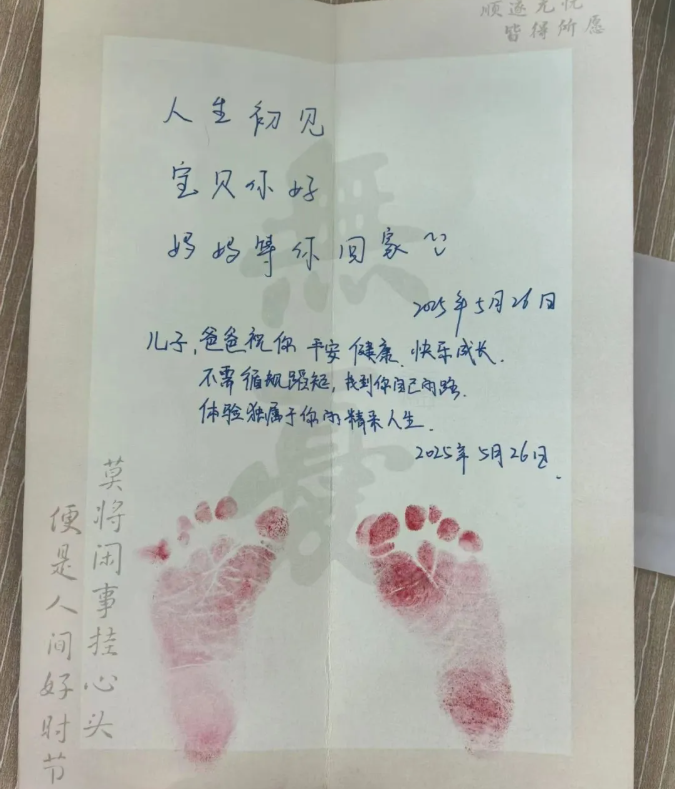 顺遂无忧
皆得所愿
人生初见
宝贝你好
妈妈等你回家
2025年5月26日
儿子,爸爸祝你 平安 健康、快乐成长.
不需循规蹈矩,找到你自己的路.
体验独属于你的精彩人生.
2025年5月26日.
無
憂
莫将闲事挂心头
便是人间好时节